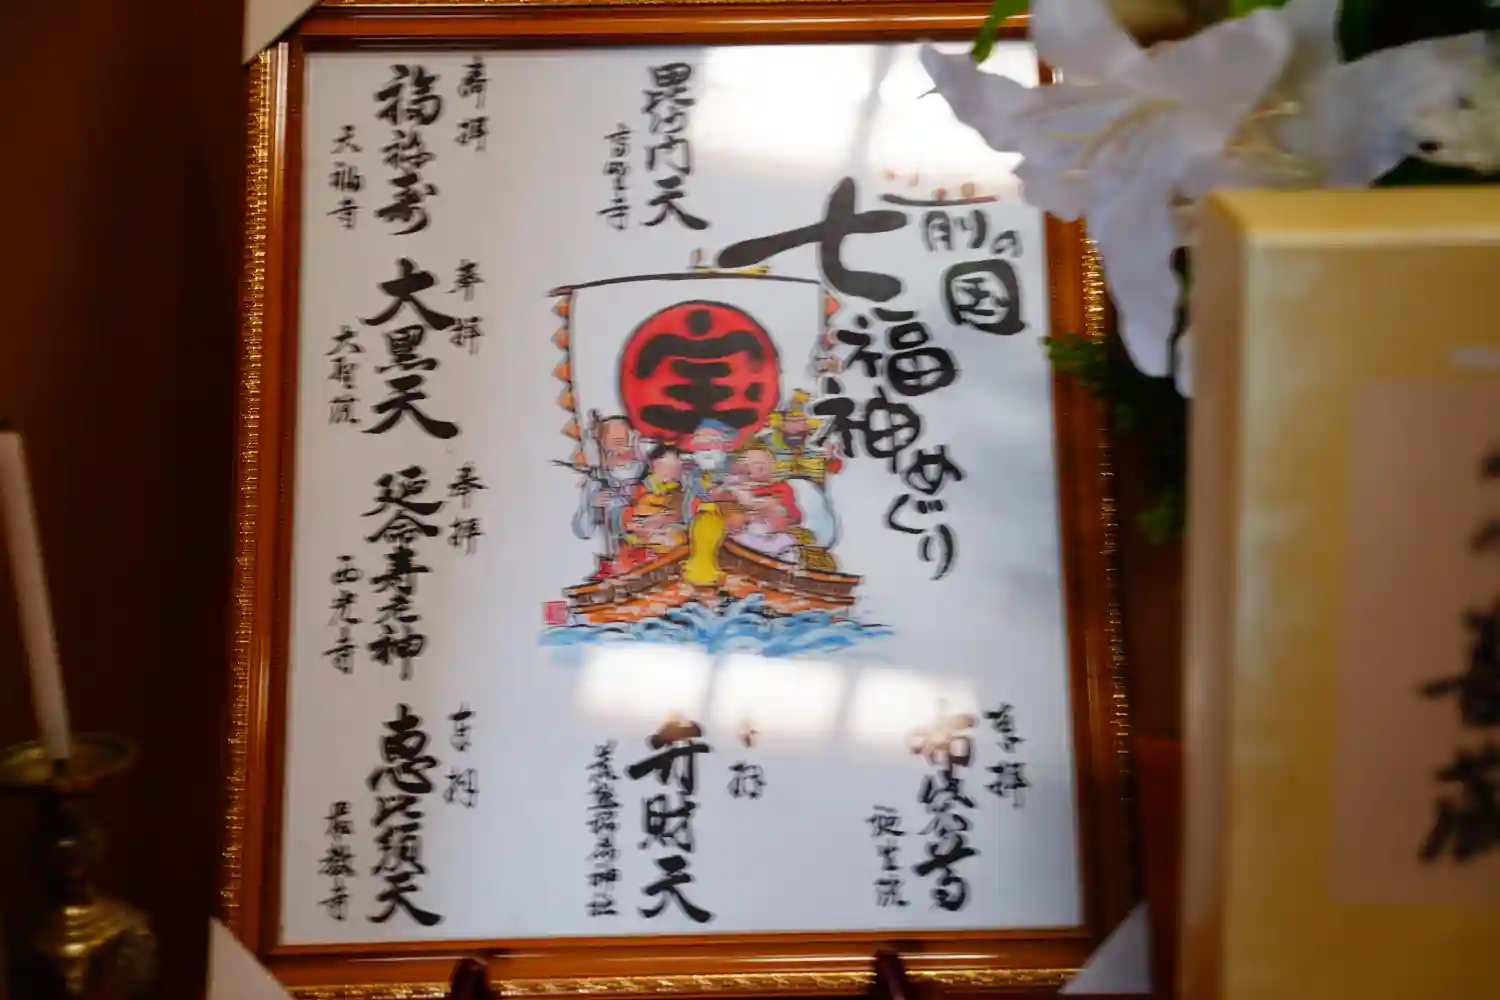 前の国
七福神めぐり
宝
毘沙門天
高野寺
奉拝
福禄寿
天福寺
奉拝
大黒天
大聖院
奉拝
延命寿老神
西光寺
奉拝
恵比須天
奉拝
弁財天
奉拝
布袋尊
誕生院